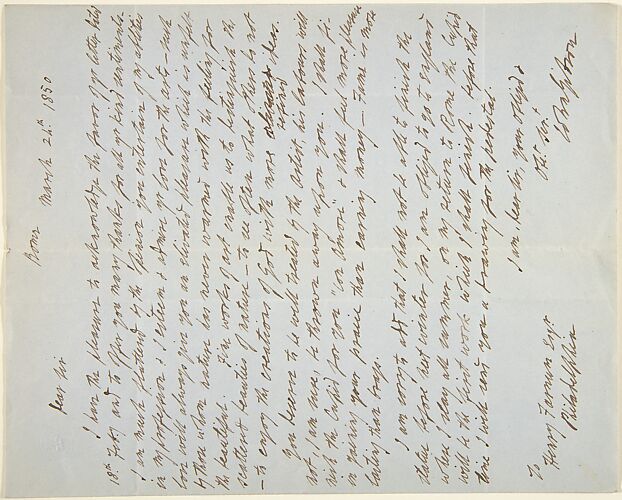 Rome March 24th 1850
Dear Sir
I have the pleasure to acknowledge the favor of yr letter dated
18th Feby and to offer you many thanks for all yr kind sentiments.
I am much flattered by the opinion you entertain of my abilities
in my profession & I esteem & admire yr love for the arts - such
love will always give you an elevated pleasure which is unfelt
by those whom nature has never warmed with the feeling for
the beautiful. Fine works of art enable us to distinguish the
scattered beauties of nature - to see often what others do not
- to enjoy the creations of God with more refined ideas.
You deserve to be well treated by the artist his labours will
not, I am sure, be thrown away upon you. I shall fi-
nish the cupid for you "con amore" & shall feel more pleasure
in gaining your praise than earning money - Fame is more
lasting than cups.
I am sorry to add that I shall not be able to finish the
statue before next winter for I am obliged to go to England
where I stay all summer, on my return to Rome the Cupid
will be the first work which I shall finish. Before that
time I will send you a drawing for the pedestal.
I am, dear Sir, your obliged &
Obt Svt
To
Henry Farnum Esqr
Philadelphia